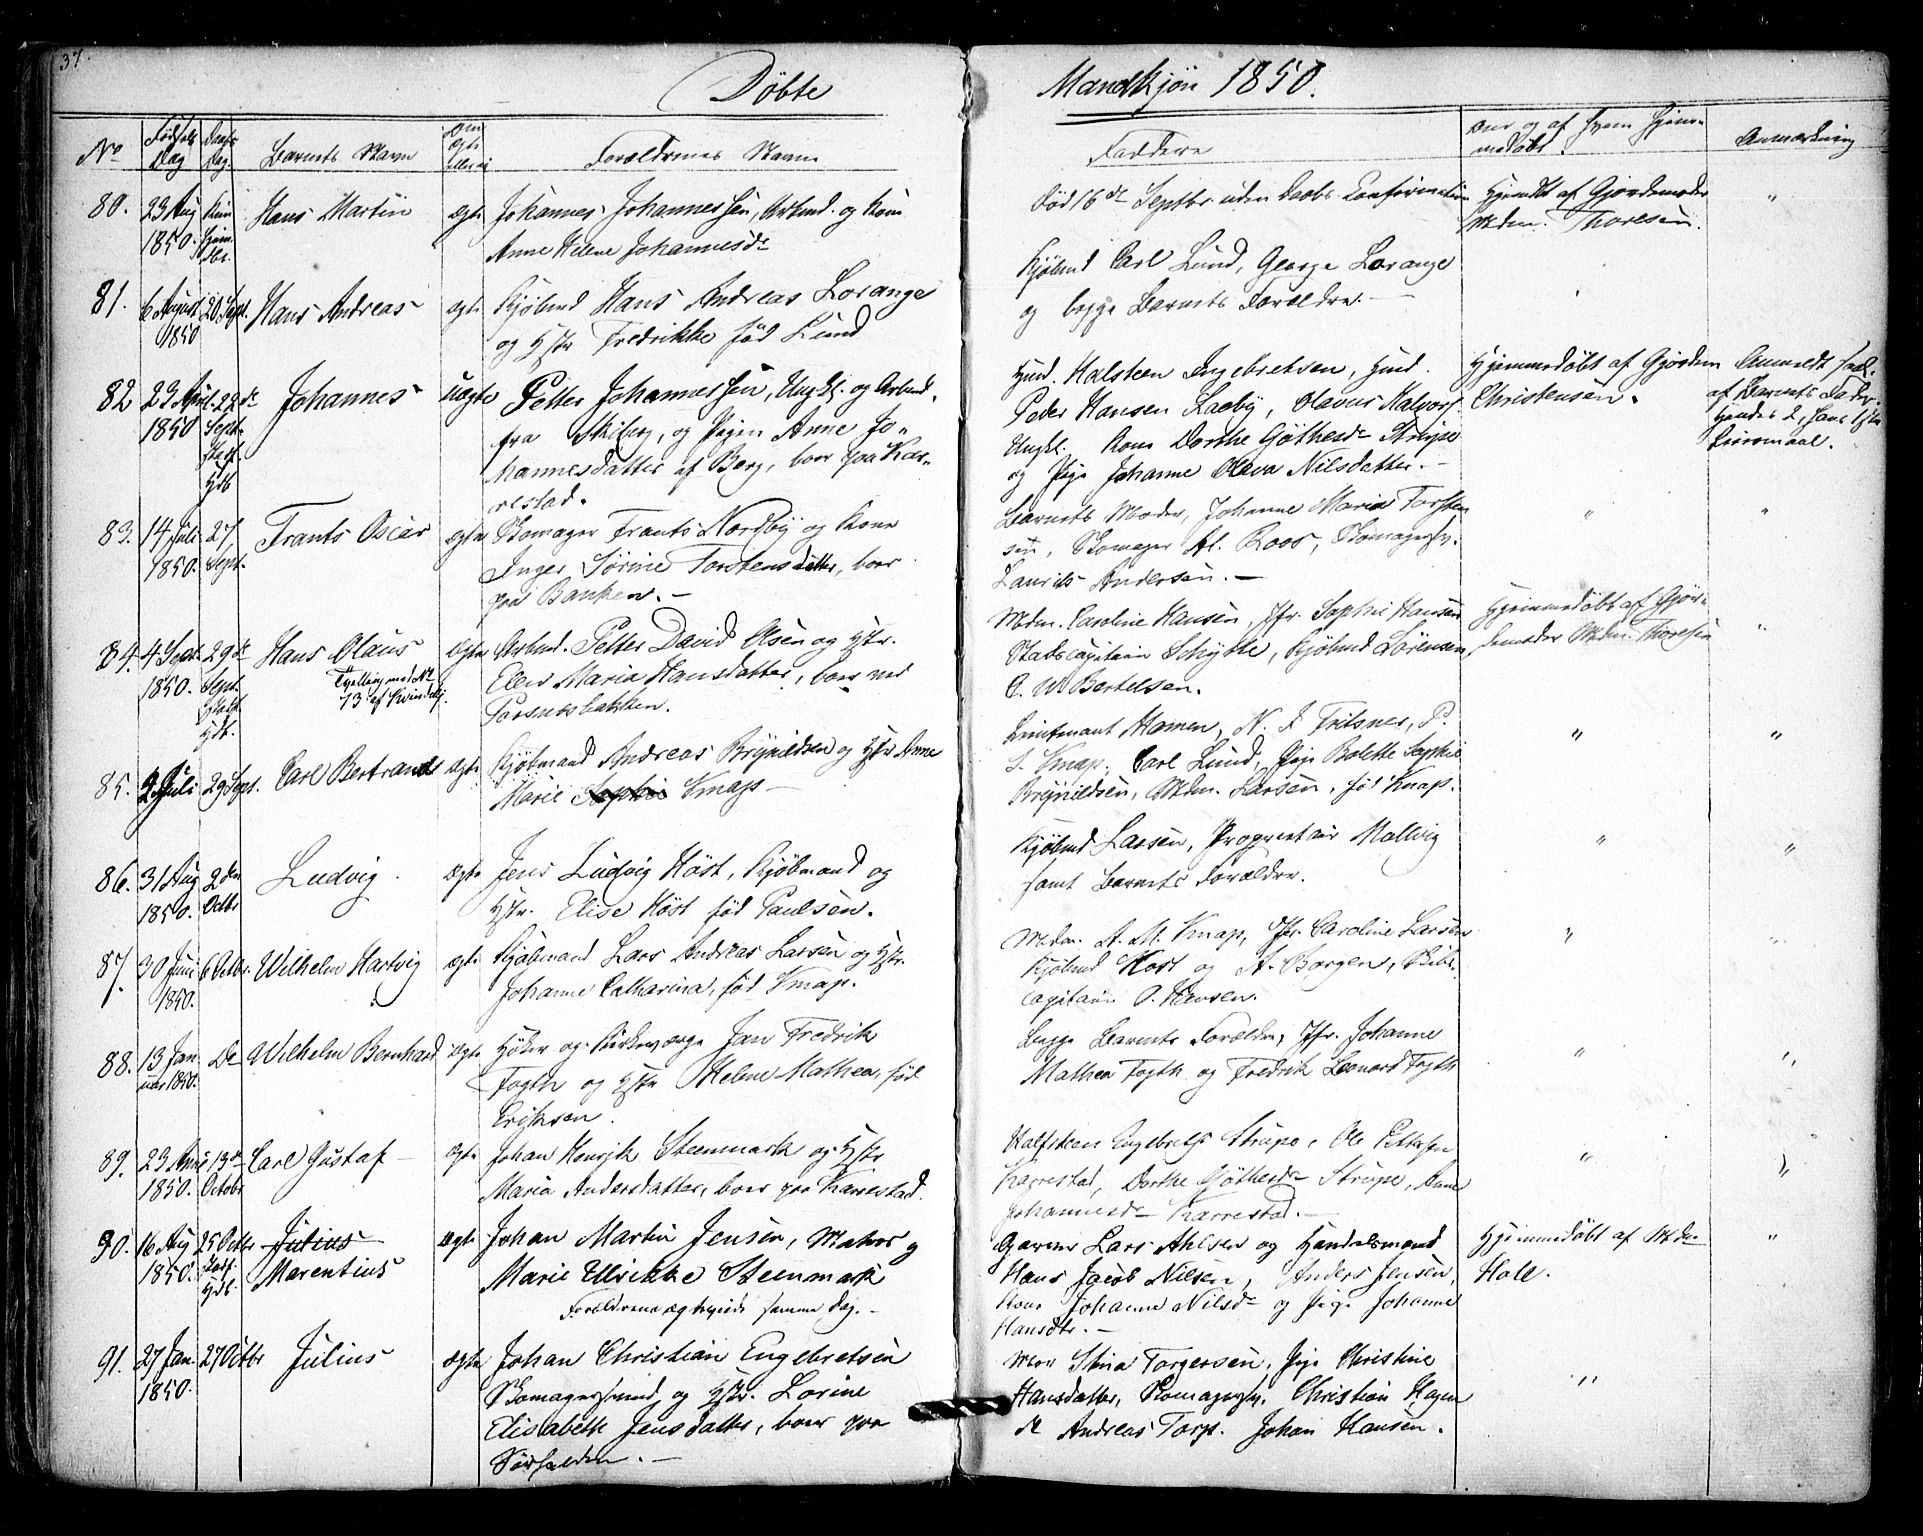 37.
Døbte
Mandkjøn 1850.
No
Fødsels Dag
Daabs Dag
Barnets Navn
Om Ægte eller ei
Forældrenes Navne
Faddere
Naar og af hvem hjemmedøbt.
Anmærkning
80.
23 Aug 1850.
Hans Martin
ægte
Johannes Johannessen, Arbmd. og Kone
Anne Helene Johannesdr
Død 16de Septbr uden Daabs Confirmation
Hjemdbt af Gjordemoder
Mdm. Thoresen.
"
81.
6 August 1850
20 Sept.
Hans Andreas
ægte
Kjøbmd Hans Andreas Lorange
og Hstr Fredrikke fød Lund
Kjøbmd Carl Lund, George Lorange
og begge Barnets Forældre. —
82
22de Sept. Stadf. Hdb
1850
Johannes
uægte
Petter Johannessen, Ungkl. og Arbmd.
fra Skiberg, og Pigen Anne Jo-
hannesdatter af Berg, boer paa Kar-
restad.
Hmd. Halsteen Ingebretsen, Hmd.
Peder Hansen Raaby, Olavus Halvors.
Ungkl. Kone Dorthe Gøthesdr Strupe
og Pige Johanne Oleva Nilsdatter. —
Hjemmedøbt af Gjordem
Christensen.
Anmeldt som
af Barnets Fader.
Hendes 2, hans 1ste
Leiermaal.
83.
14 Juli 1850.
27 Sept.
Frants Oscar
ægte
Skomager Frants Nordby og Kone
Inger Sørine Torstensdatter, boer
paa Banken. —
Barnets Moder, Johanne Maria Torsten
sen, Skomager Al. Roos, Skomagersv.
Laurits Andersen. —
"
"
84.
4 Sept. 1850.
29de Sept. Stadf. Hdb.
Hans Olaus
Tvilling med No
73 af Kvindekj.
ægte
Arbmd. Petter David Olsen og Hstr.
Elen Maria Hansdatter, boer ved
Torsnæsbakken.
Mdm. Caroline Hansen, Jfr. Sophie Hansen
Stadscapitain Schytte, Kjøbmd Sørensen,
C. W. Bertelsen.
Hjemmedøbt af Gjor-
demoder Mdm. Thoresen
"
85.
2 Juli
29 Sept.
Carl Bertrand
ægte
Kjøbmand Andreas Brynildsen og Hstr Anne
Marie Sophie Knap —
Lieutenant Mamen, N. J. Fritsner, P.
S. Knap, Carl Lund, Pige Bolette Sophie
Brynildsen, Mdm. Larsen, fød Knap.
"
"
86.
31 Aug 1850.
2den Octbr
Ludvig.
ægte
Jens Ludvig Høst, Kjøbmand og
Hstr. Elise Høst fød Paulsen.
Kjøbmd Larsen, Proprietair Mallvig
samt Barnets Forældre.
"
"
87.
30 Juni 1850.
6 Octbr.
Wilhelm Hartvig
ægte
Kjøbmand Lars Andreas Larsen og Hstr.
Johanne Catharina, fød Knap.
Mdm. A. M. Knap, Jfr. Caroline Larsen
Kjøbmd Høst og A. Borgen, Skibs-
capitain P. Hansen.
"
"
88.
13 Januar 1850.
Do
Wilhelm Bernhard
ægte
Høker og Kirkeværge Jan Fredrik
Fogth og Hstr Helene Mathea, fød
Eriksen.
Begge Barnets Forældre, Jfr. Johanne
Mathea Fogth og Fredrik Leonard Fogth
"
"
89.
1850.
13de Octobr
Carl Gustaf —
ægte
Johan Henrik Steenmark og Hstr
Maria Andersdatter, boer paa Karrestad.
Halfsteen Engebrets. Strupe, Ole Pettersen
Karrestad, Dorthe Gøthesdr Strupe, Anne
Johannesdr Karrestad. —
"
"
90.
16 Aug 1850.
25 Octbr Stadf. Hdb.
Julius
Marentius
ægte
Johan Martin Jensen, Matros og
Marie Ulrikke Steenmark
Forældrene ægteviede samme Dag. —
Garver Lars Ahlsen og Handelsmand
Hans Jacob Nilsen, Anders Jensen,
Kone Johanne Nilsdr og Pige Johanne
Hansdtr. —
Hjemmedøbt af Mdm
Holl.
"
91.
27 Jan. 1850.
27 Octbr
Julius
ægte
Johan Christian Engebretsen
Skomagersvend og Hstr. Lorine
Elisabeth Jensdatter, boer paa
Sørhalden. —
Mdm Stina Torgersen, Pige Christine
Hansdatter, Skomagersv. Christian Hagen
do Andreas Torp. Johan Hansen.
"